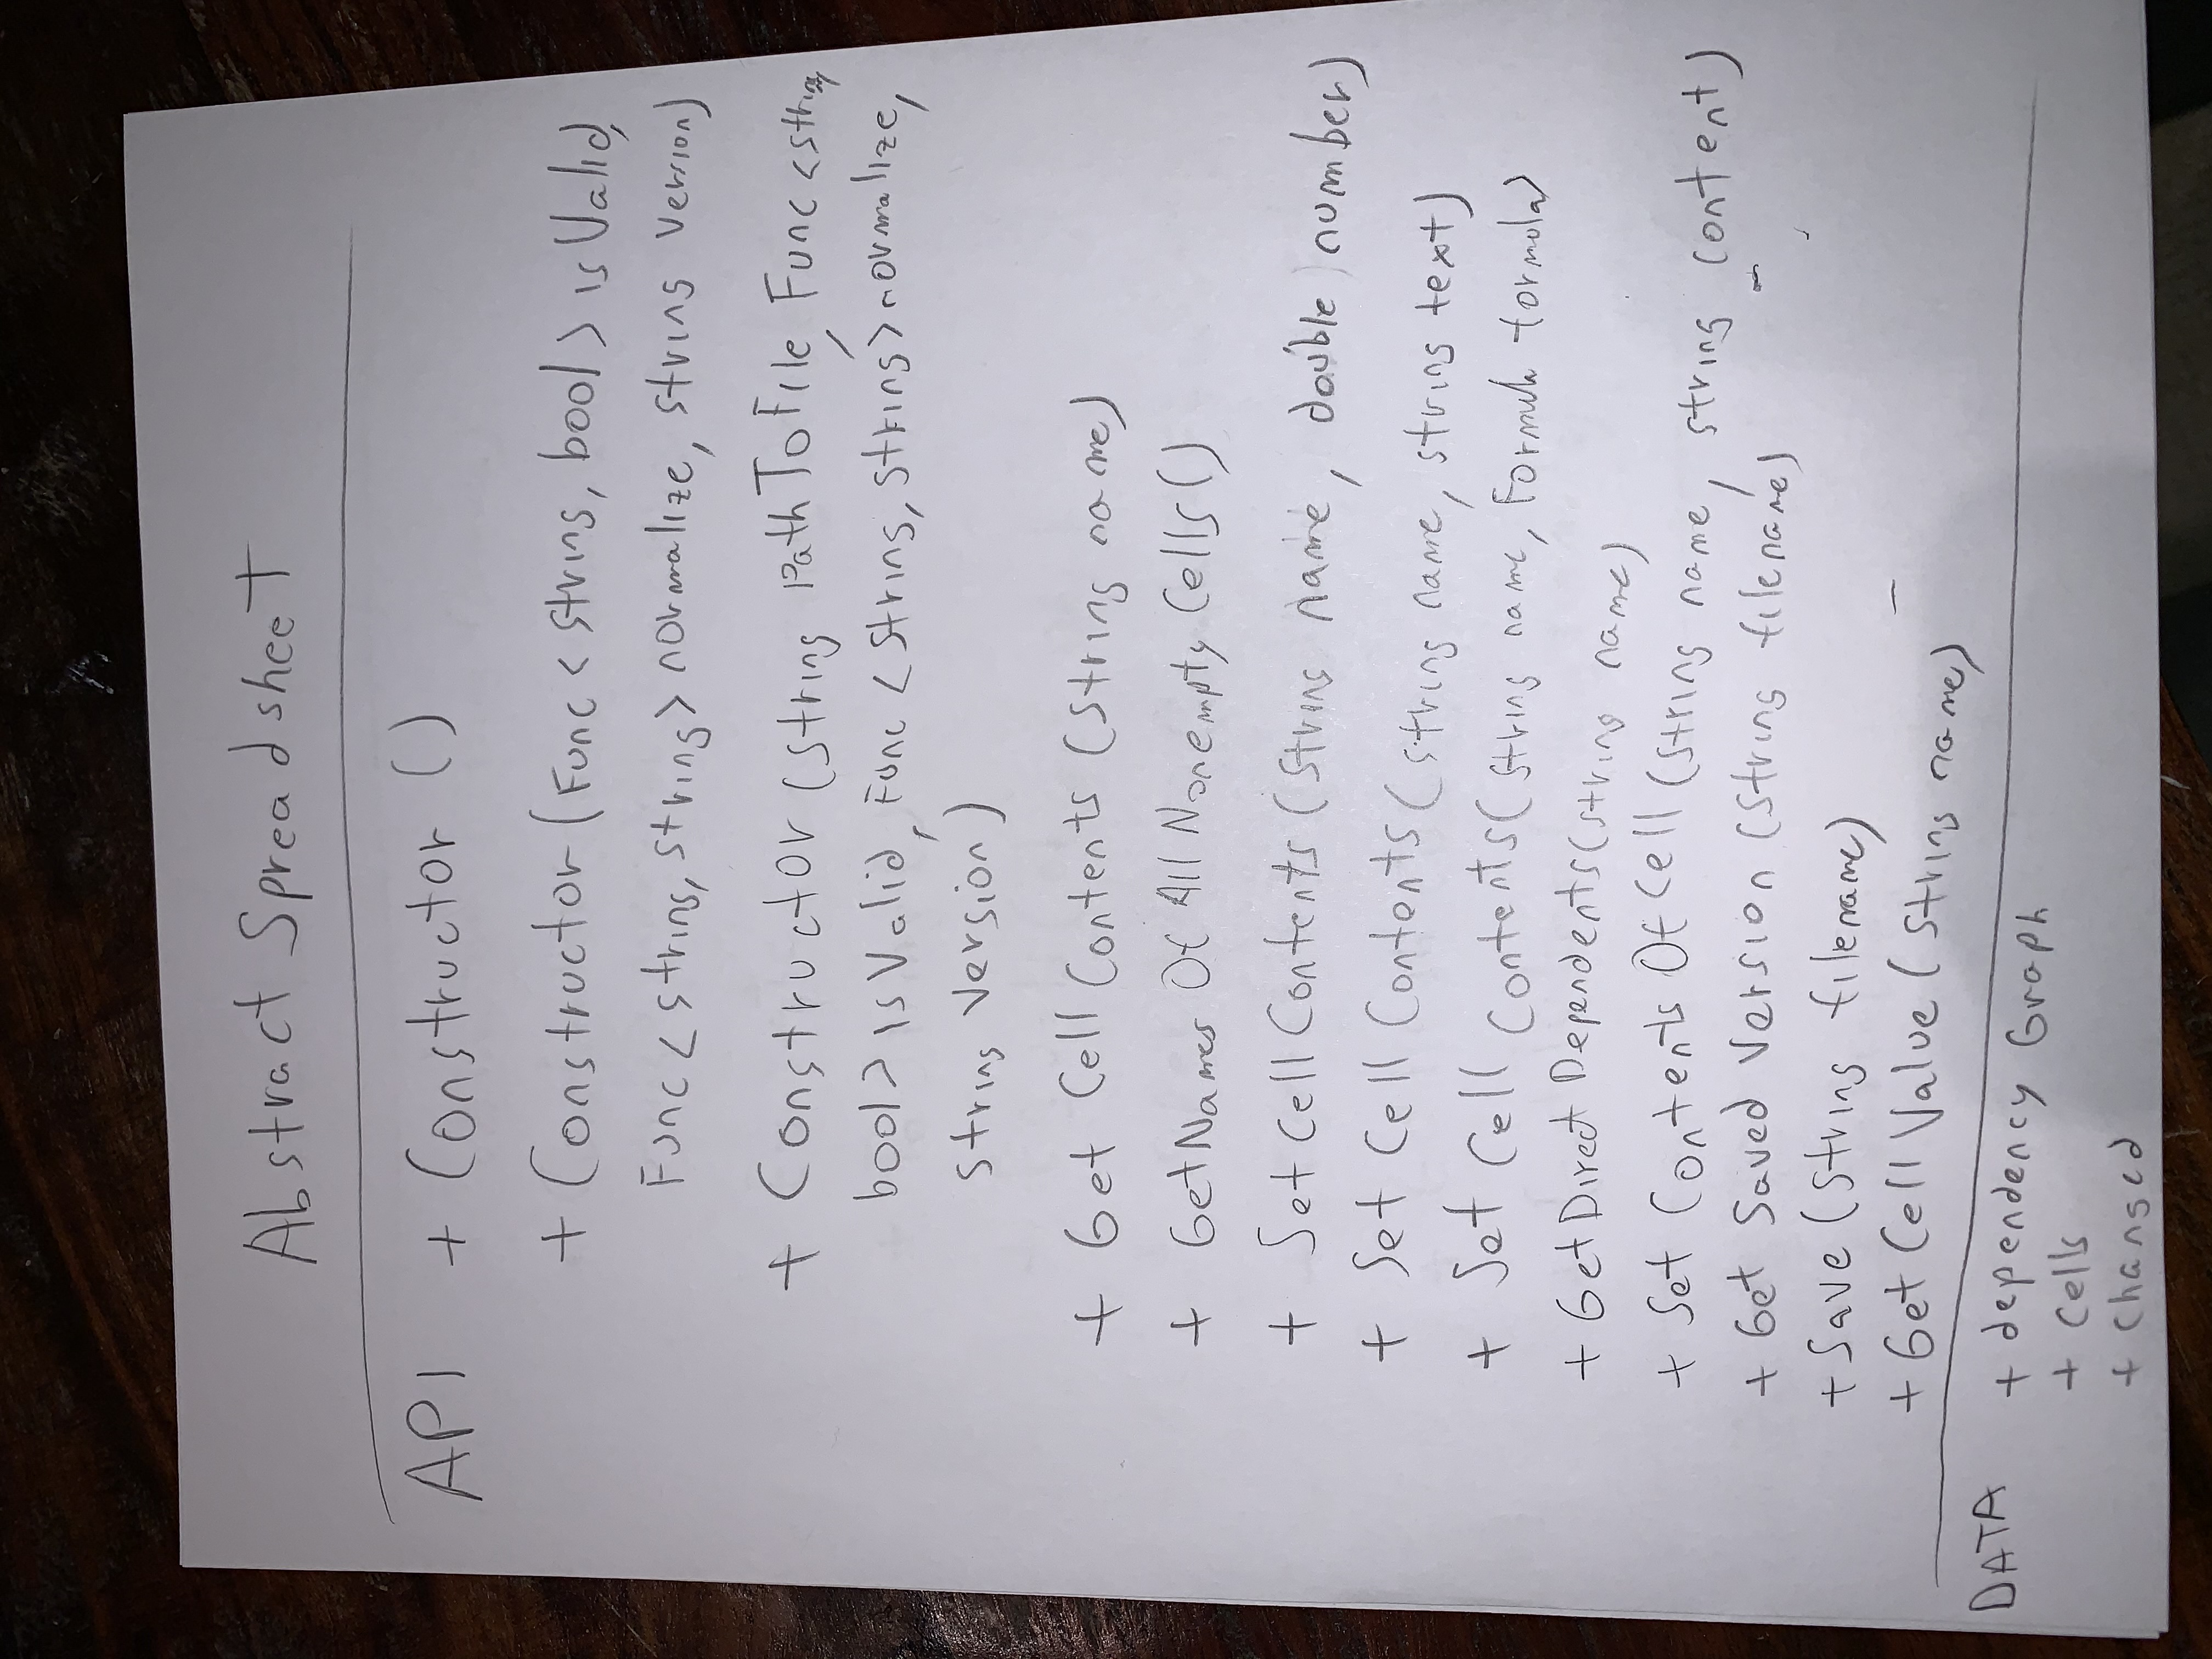 Abstract Spreadsheet
API + Constructor ()
+ Constructor (Func < string, bool > isValid,
Func < string, string > normalize, string version)
+ Constructor (string PathToFile, Func < string,
bool > isValid, Func < string, string > normalize,
string version)
+ Get Cell Contents (string name)
+ GetNames Of All Nonempty Cells ()
+ Set Cell Contents (string name, double number)
+ Set Cell Contents (string name, string text)
+ Set Cell Contents (string name, Formula formula)
+ Get Direct Dependents (string name)
+ Set Contents Of Cell (string name, string content)
+ Get Saved Version (string filename)
+ Save (string filename)
+ Get Cell Value (string name)
DATA + dependency Graph
+ Cells
+ Changed